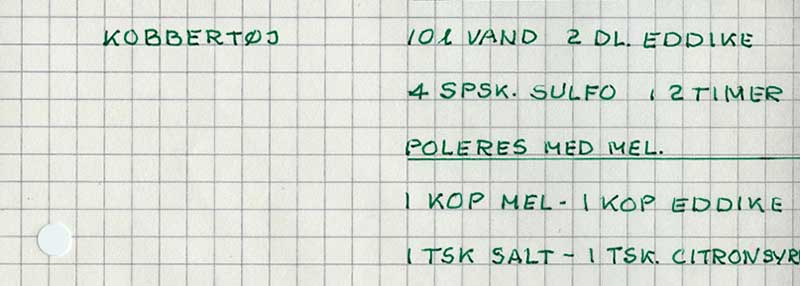 KOBBERTØJ
10 l VAND 2 DL. EDDIKE
4 SPSK. SULFO I 2 TIMER
POLERES MED MEL.
1 KOP MEL - 1 KOP EDDIKE
1 TSK SALT - 1 TSK. CITRONSYR